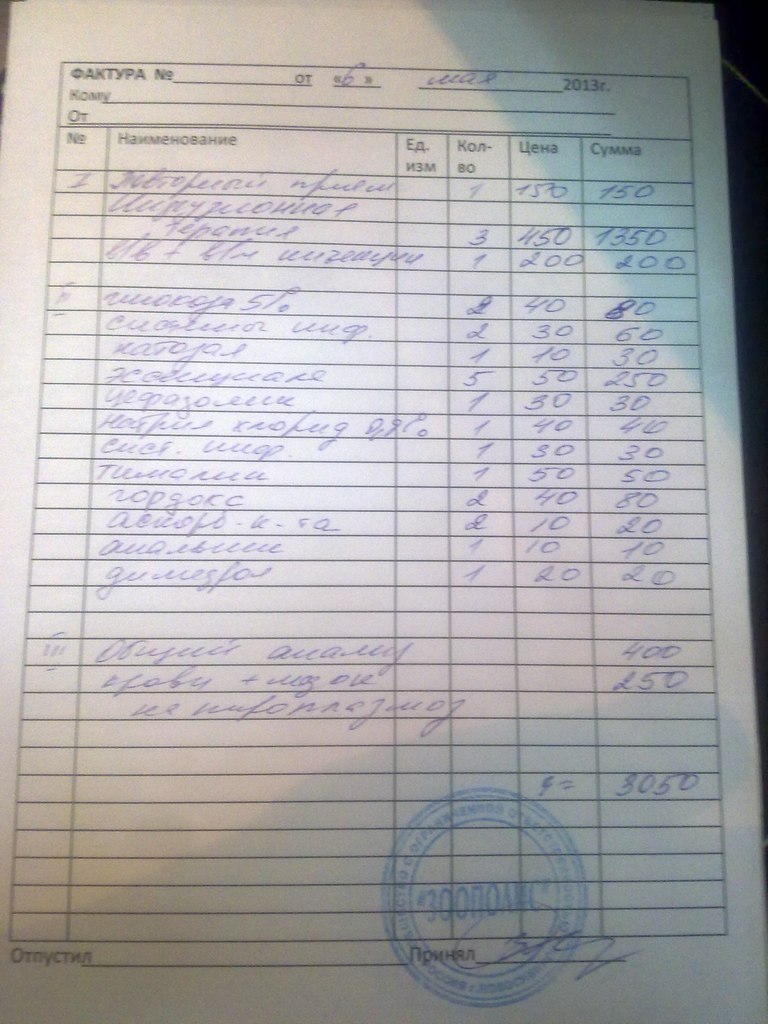 ФАКТУРА №____________ от «6» мая 2013г.
Кому
От
№ Наименование Ед. изм Кол-во Цена Сумма
I Повторный приём 1 150 150
Инфузионная
терапия 3 450 1350
в/в + в/м инъекции 1 200 200
II глюкоза 5% 2 40 80
системы инф. 2 30 60
катозал 1 10 30
эссенциале 5 50 250
цефазолин 1 30 30
натрия хлорид 0,9% 1 40 40
сист. инф. 1 30 30
тималин 1 50 50
гордокс 2 40 80
аскорб. к-та 2 10 20
анальгин 1 10 10
димедрол 1 20 20
III Общий анализ 400
крови + мазок 250
на пироплазмоз
3050
Отпустил Принял
"ЗООПОЛИС"